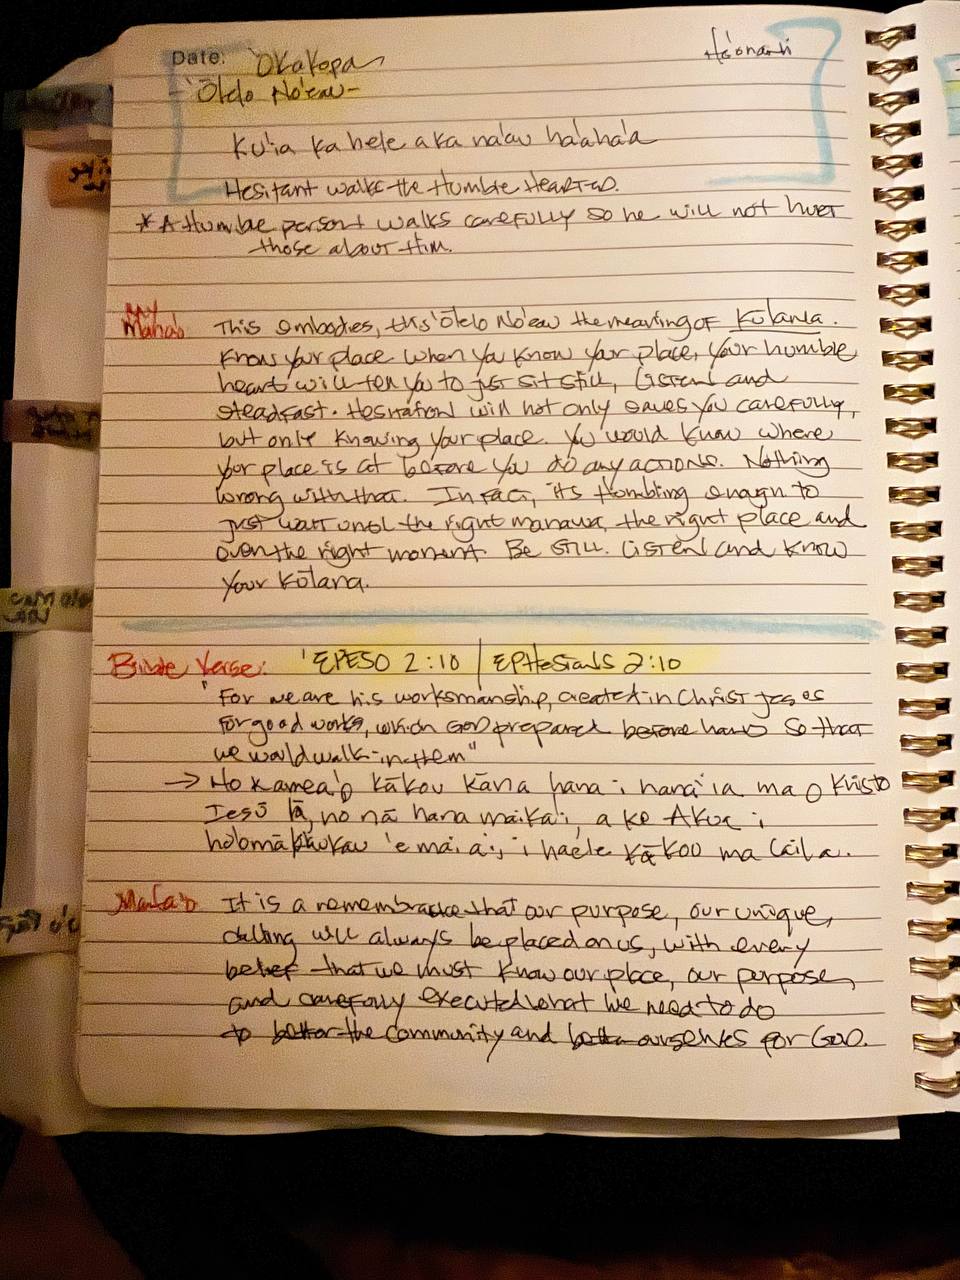 Date: 'Okakopa
- 'Ōlelo No'eau -
Ku'ia ka hele a ka na'au ha'aha'a
Hesitant walks the Humble Hearted.
* A Humble person walks carefully so he will not hurt
those about him.
My
Mana'o This embodies, this 'Ōlelo No'eau the meaning of Kūlana.
Know your place when you know your place, your humble
heart will tell you to just sit still, Listen and
steadfast. Hesitation will not only saves you carefully,
but only knowing your place. You would know where
your place is at before you do any actions. Nothing
wrong with that. In fact, it's Humbling enough to
just wait until the right manawa, the right place and
even the right moment. Be still. Listen and know
Your Kūlana.
Bible Verse: 'EPESO 2:10 | EPHesians 2:10
"For we are his worksmanship, created in Christ Jesus
for good works, which God prepared before hand so that
we would walk in them"
→ No ka mea, 'o kākou kāna hana i hana 'ia ma o Kristo
Iesū lā, no nā hana maika'i, a ke Akua i
ho'omākaukau 'e mai ai, i ha'ele kākou ma laila.
Mana'o It is a remembrance that our purpose, our unique,
calling will always be placed on us, with every
belief that we must know our place, our purpose,
and carefully executed what we need to do
to better the community and better ourselves for God.